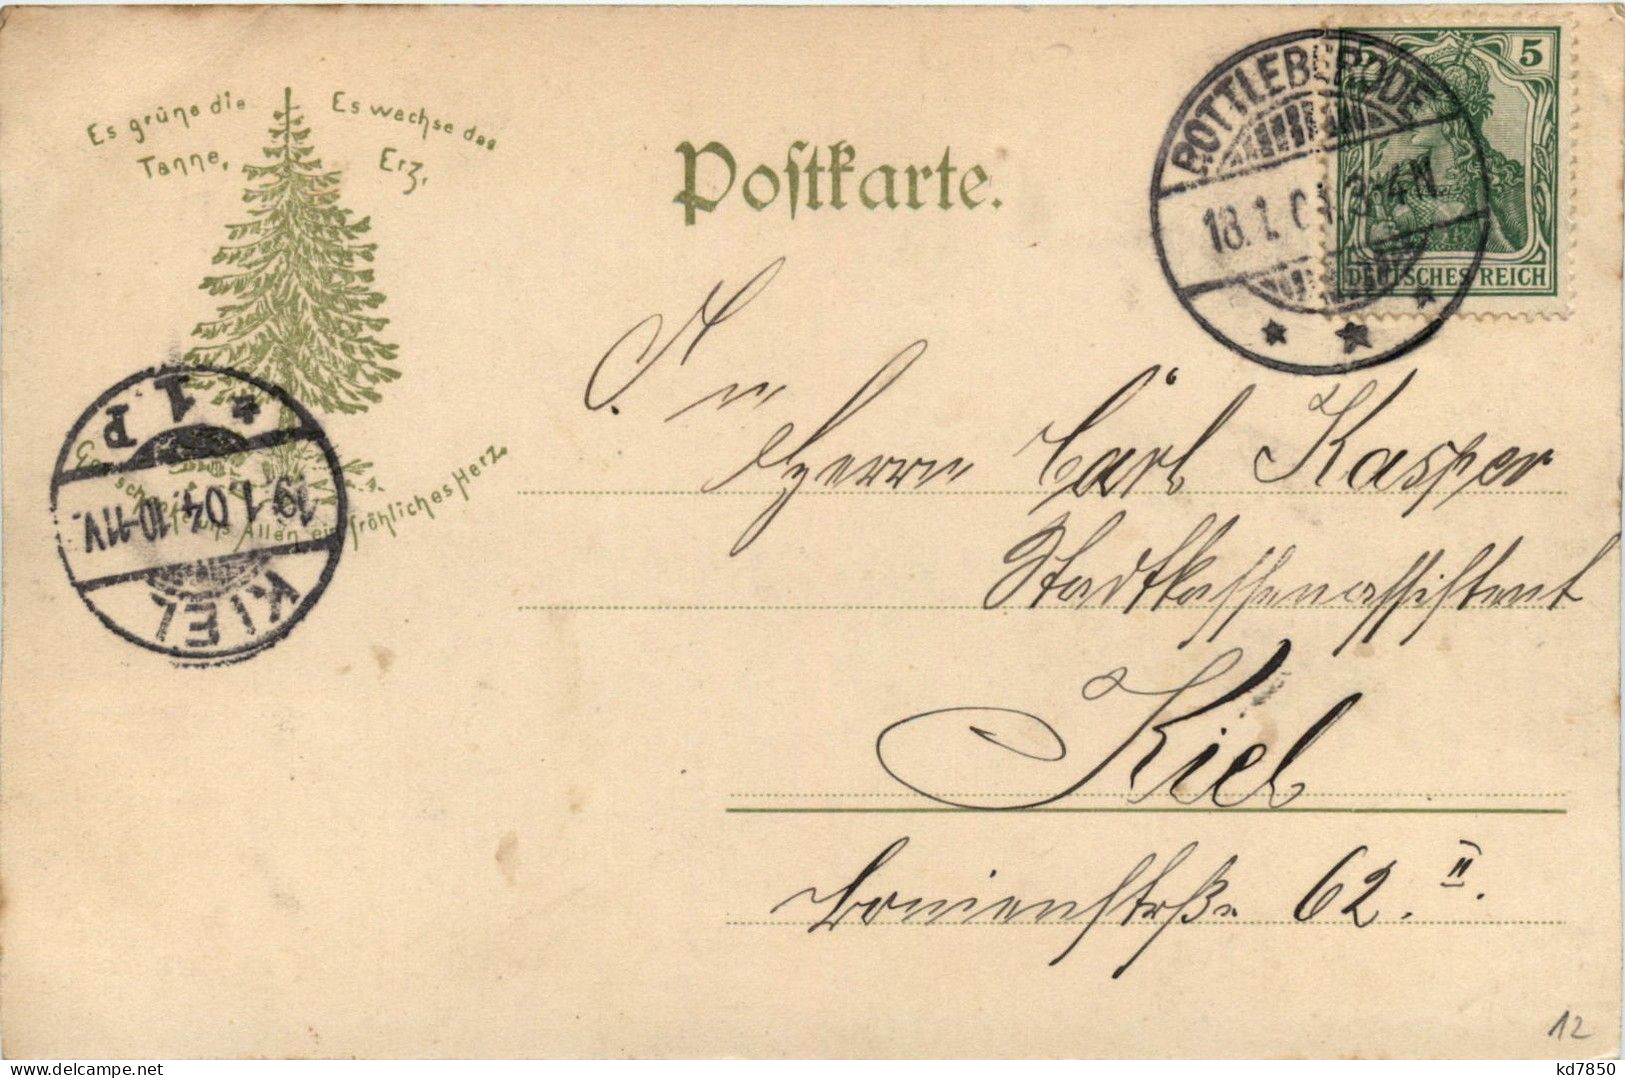 Es grüne die
Tanne,
Es wachse das
Erz,
Gott schenke uns Allen ein fröhliches Herz.
Postkarte.
5
DEUTSCHES REICH
ROTTLEBERODE
18.1.04 3-4N
KIEL
19.1.04.10-11V.
* 1 P
An
Herrn Carl Kasper
Stadtkassenassistent
Kiel
62. II.
12
kd7850